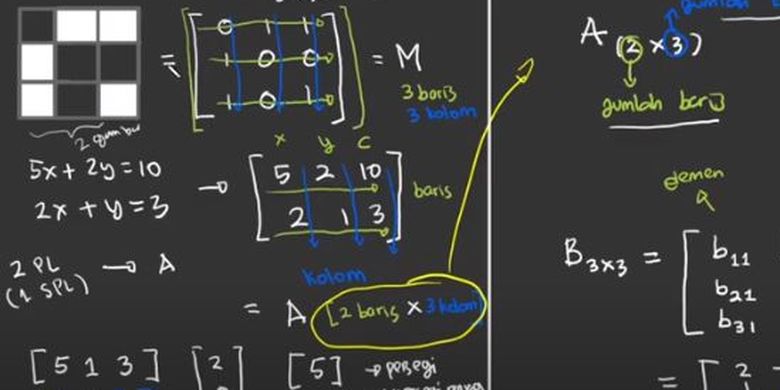 0 1 1
1 0 0
1 0 1
= M
3 baris
3 kolom
5x + 2y = 10
2x + y = 3
→
x y c
5 2 10
2 1 3
baris
kolom
2 PL → A
(1 SPL)
= A [2 baris × 3 kolom]
[5 1 3]
[2
[5] → persegi
A (2 × 3)
jumlah baris
elemen
B3×3 =
b11
b21
b31
= [2